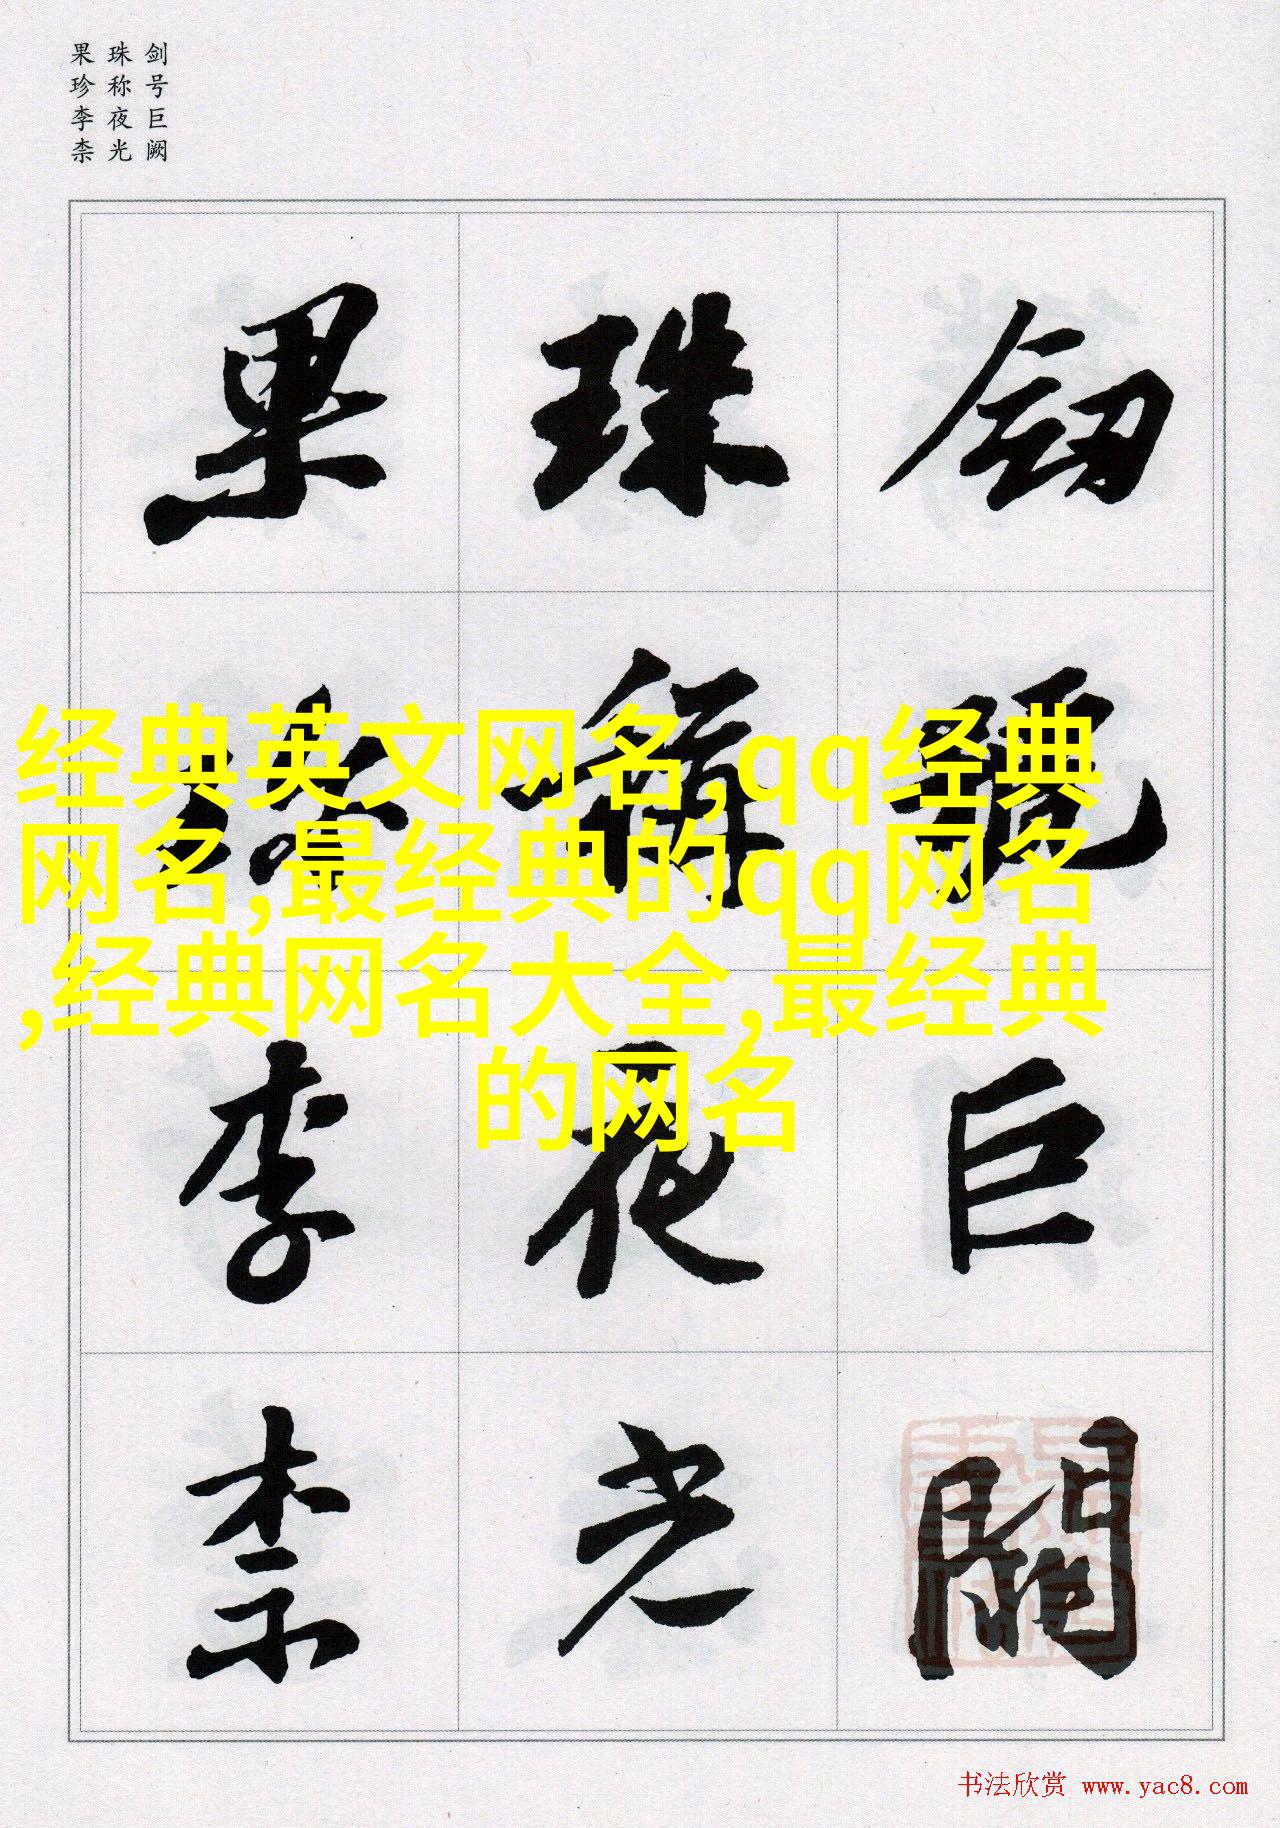 剑号巨阙
珠称夜光
果珍李柰
劒號巨闕
珠稱夜光
果珍李柰
经典英文网名,qq经典
网名,最经典的qq网名
,经典网名大全,最经典
的网名
书法欣赏 www.yac8.com